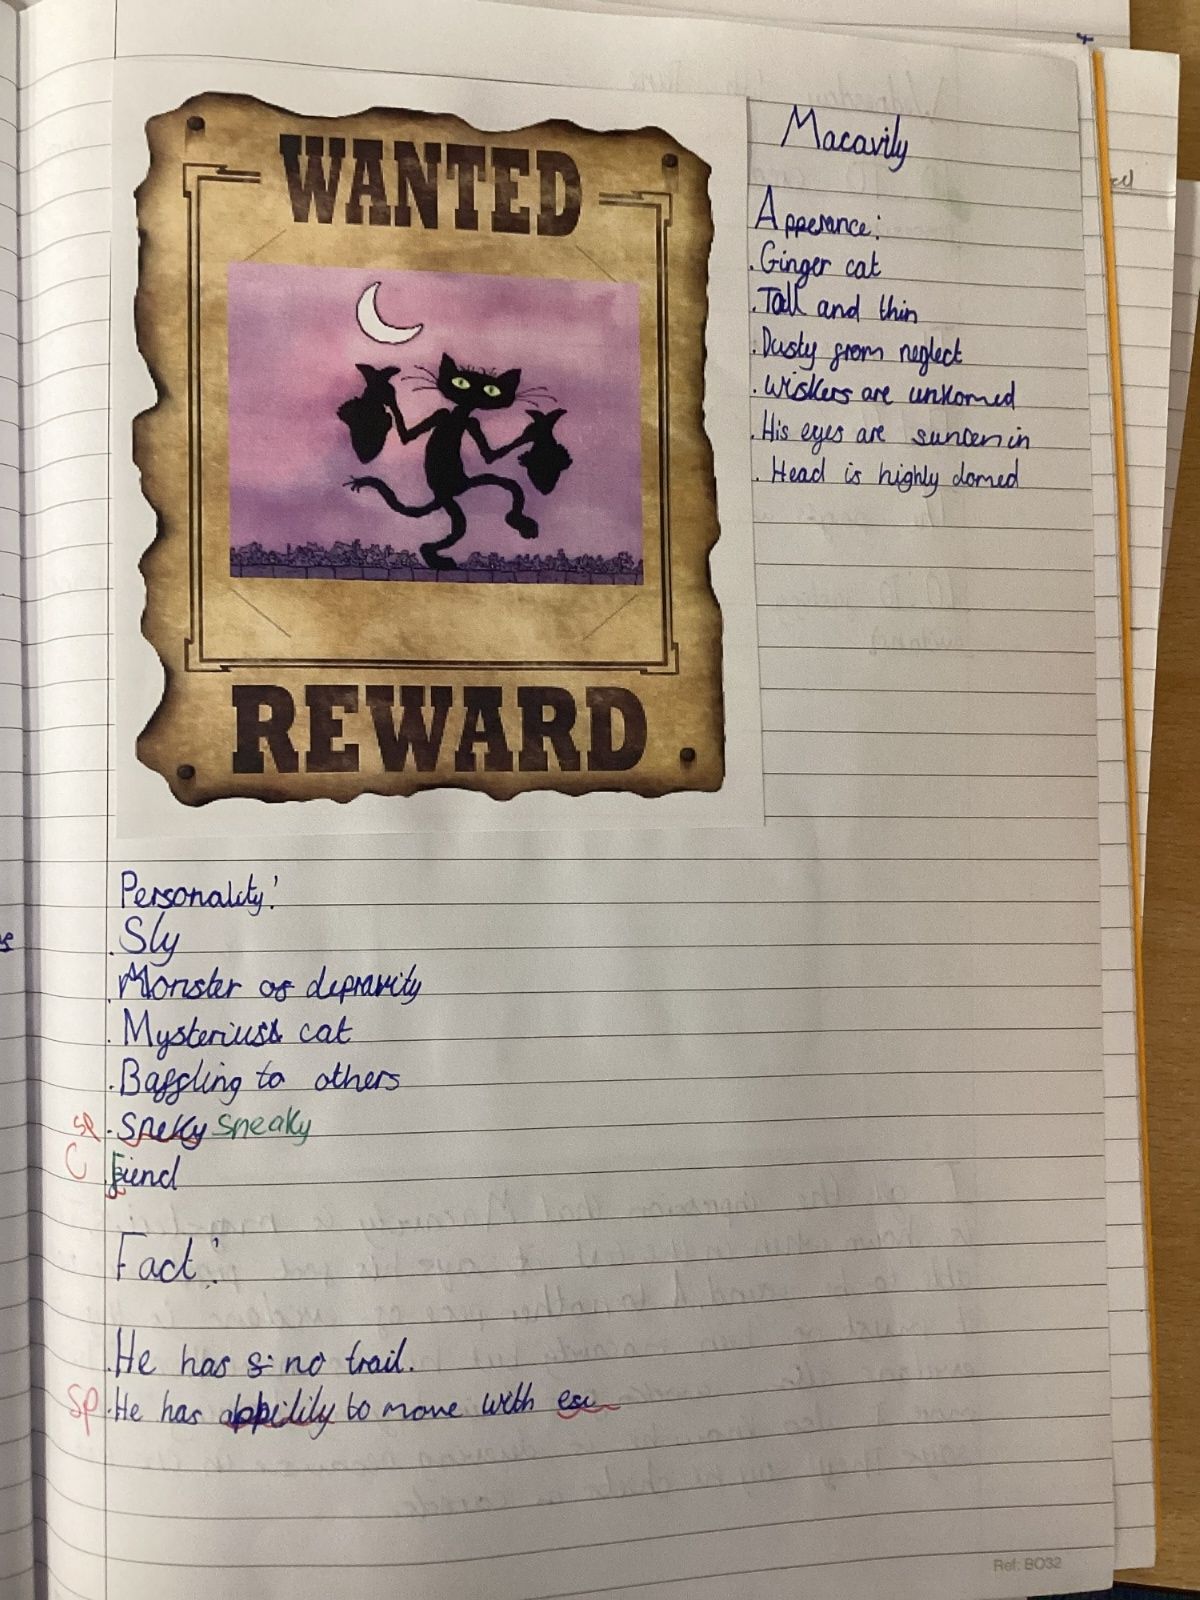 WANTED
REWARD
Macavity
Apperance:
. Ginger cat
. Tall and thin
. Dusty from neglect
. Wiskers are unkomed
. His eyes are suncen in
. Head is highly domed
Personality:
. Sly
. Monster of depravity
. Mysterius cat
. Baffling to others
sp . Sneky Sneaky
C Fiend
Fact:
. He has no trail.
sp . He has abbility to move with
Ref: BO32